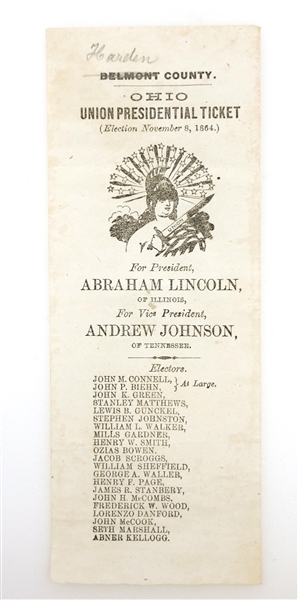 Harden
BELMONT COUNTY.
OHIO
UNION PRESIDENTIAL TICKET
(Election November 8, 1864.)
For President,
ABRAHAM LINCOLN,
OF ILLINOIS,
For Vice President,
ANDREW JOHNSON,
OF TENNESSEE.
Electors.
JOHN M. CONNELL, } At Large.
JOHN P. BIEHN,
JOHN K. GREEN,
STANLEY MATTHEWS,
LEWIS B. GUNCKEL,
STEPHEN JOHNSTON,
WILLIAM L. WALKER,
MILLS GARDNER,
HENRY W. SMITH,
OZIAS BOWEN,
JACOB SCROGGS,
WILLIAM SHEFFIELD,
GEORGE A. WALLER,
HENRY F. PAGE,
JAMES R. STANBERY,
JOHN H. McCOMBS,
FREDERICK W. WOOD,
LORENZO DANFORD,
JOHN McCOOK,
SETH MARSHALL,
ABNER KELLOGG.